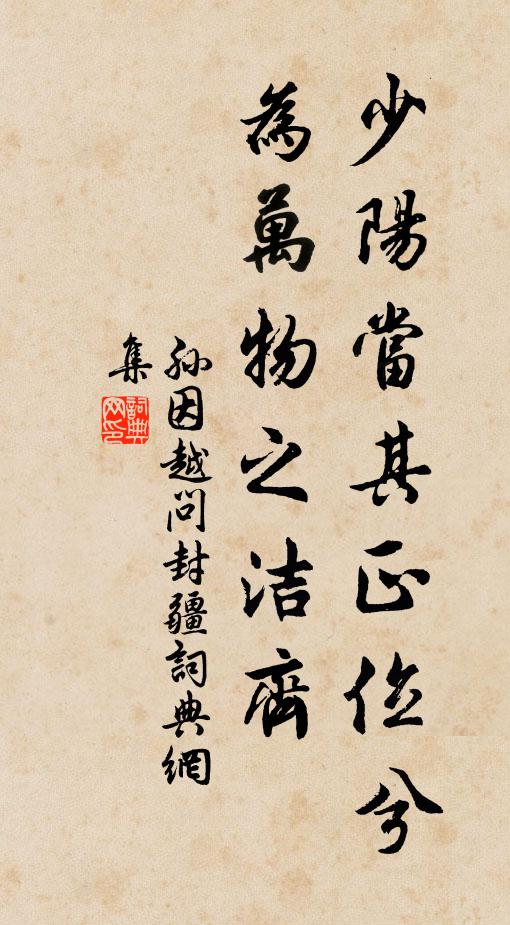 少陽當其正位兮
為萬物之洁齊
孫因越問封疆詞典網
集
詞典
网印